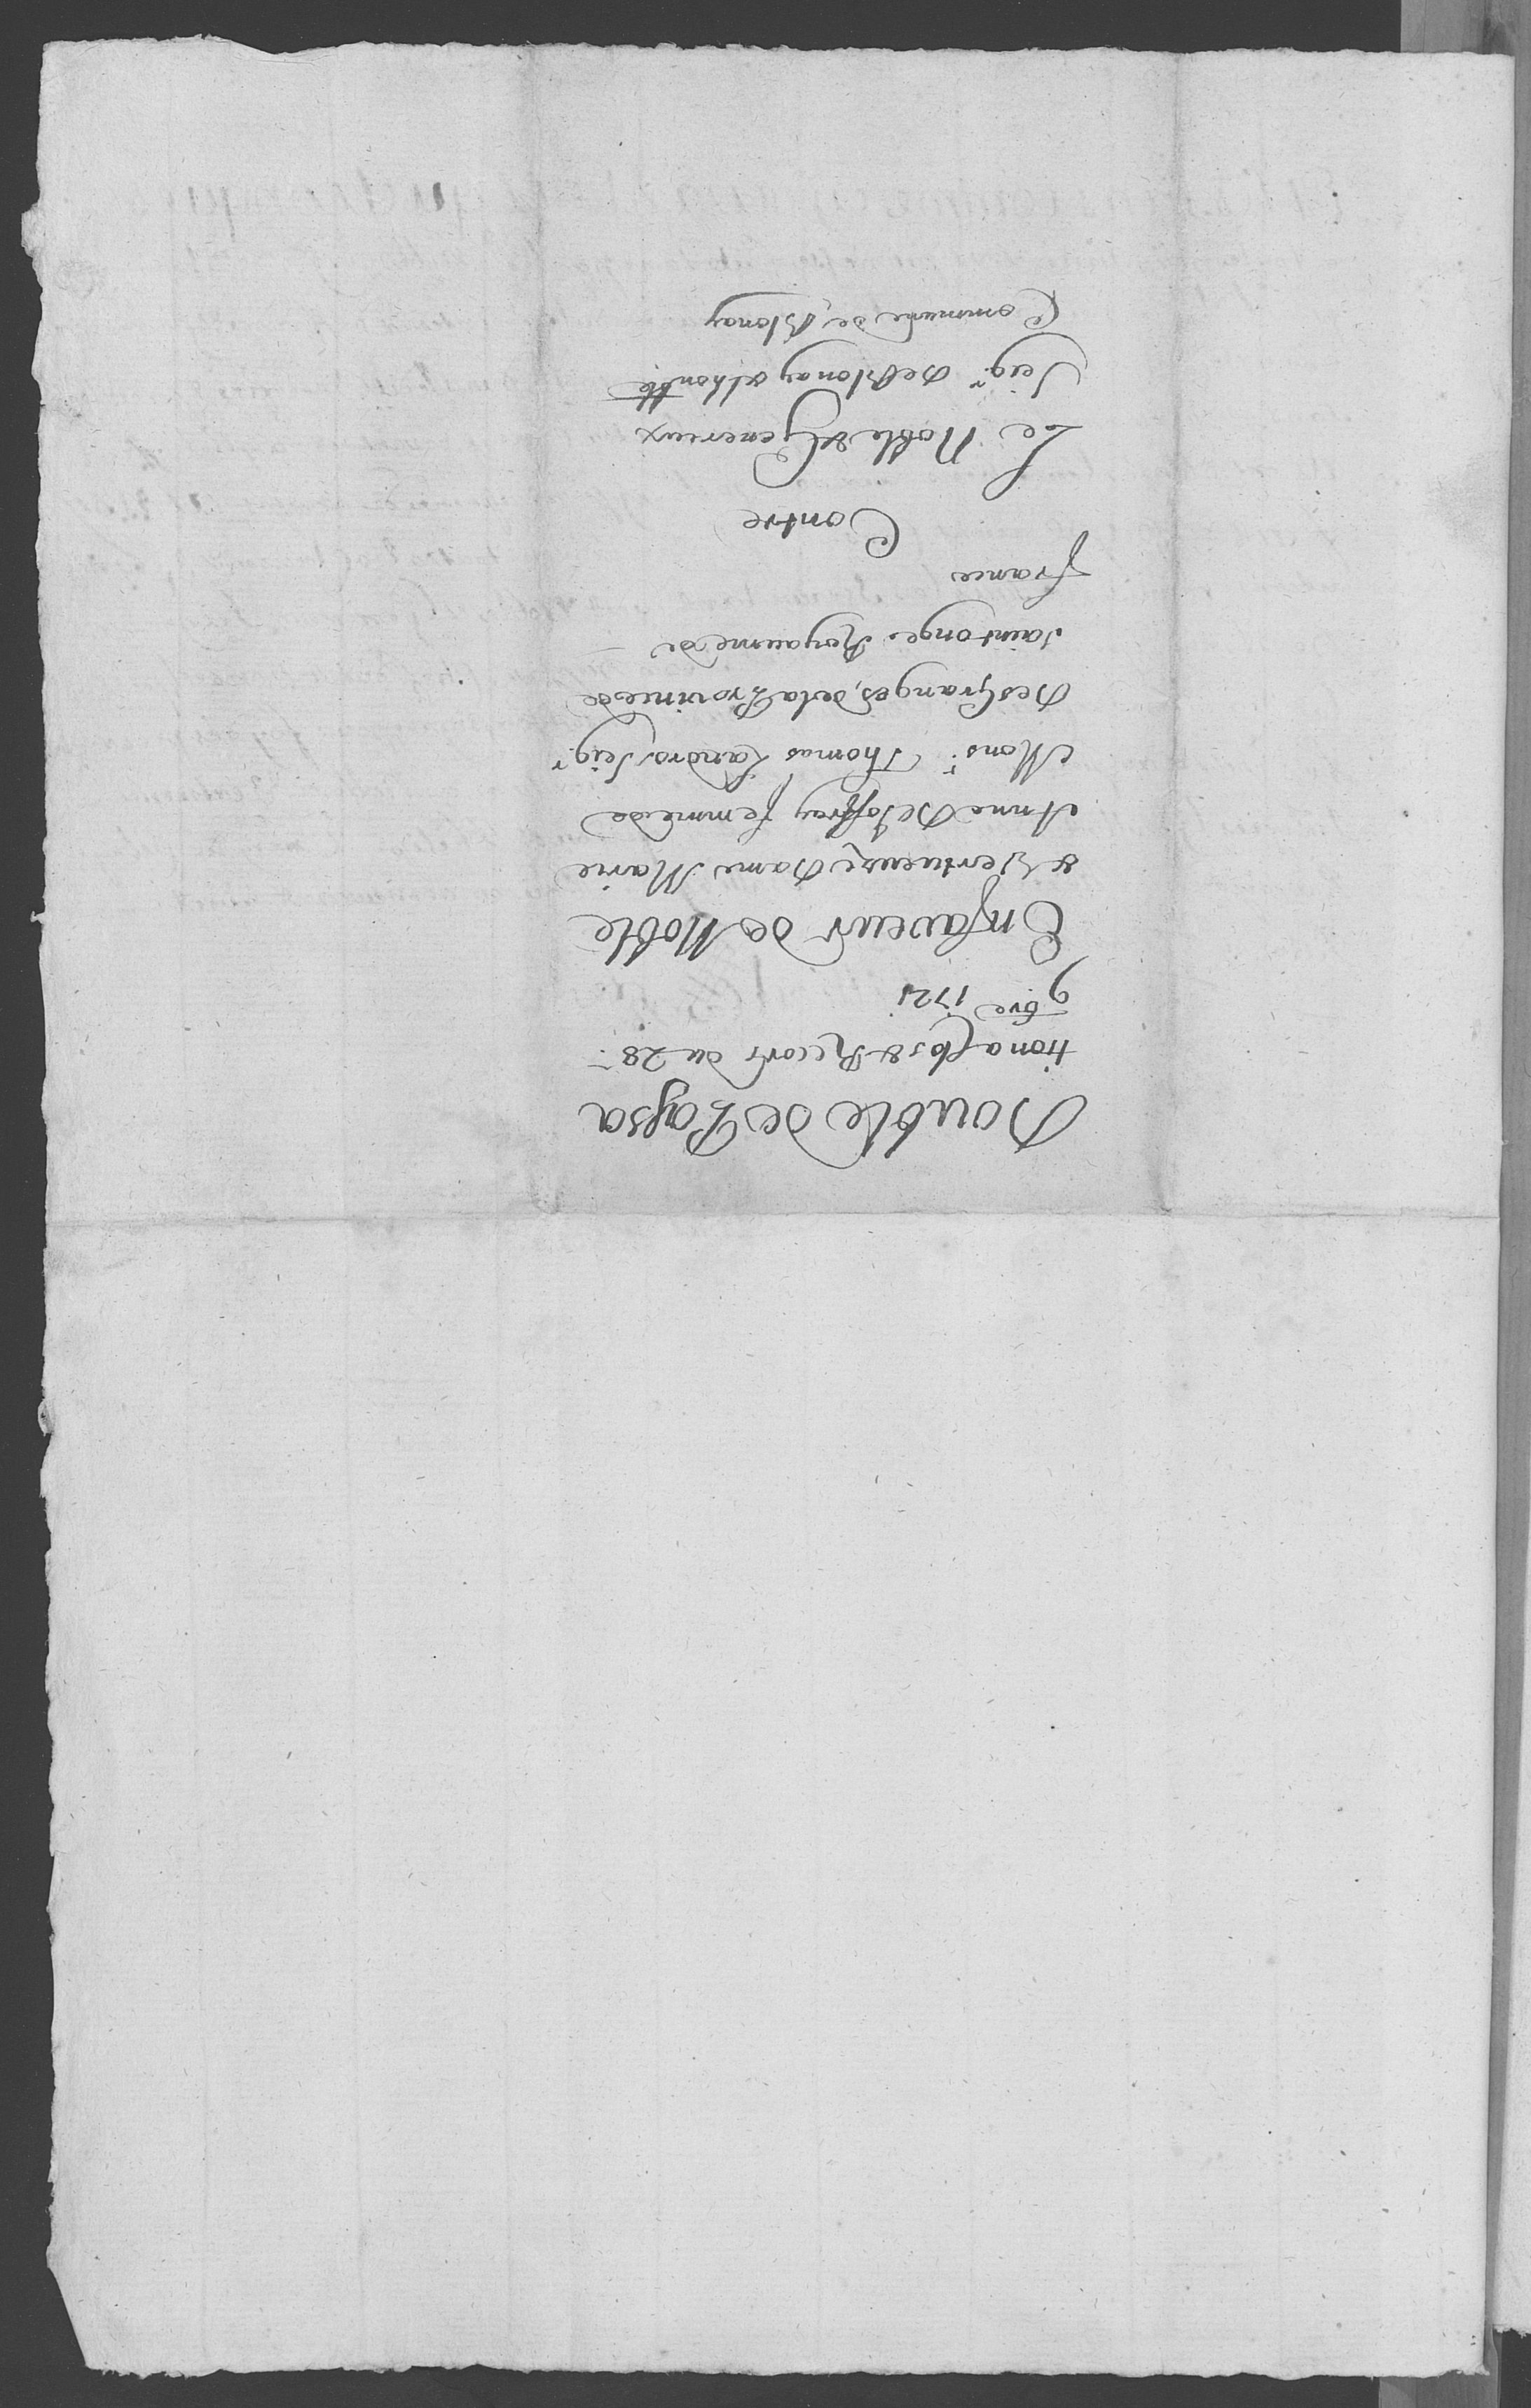 Double de Passa
tion a Clos & Record du 28.e
9bre 1721
En faveur de Noble
& Vertueuze Dame Marie
Anne De Joffrey femme de
Mons.r Thomas Landro, Seig.r
Des Granges, de la Province de
Saintonge Royaume de
france
Contre
Le Noble & Genereux
Seig.r De Blonay & lhon.ble
Commune de Blonay